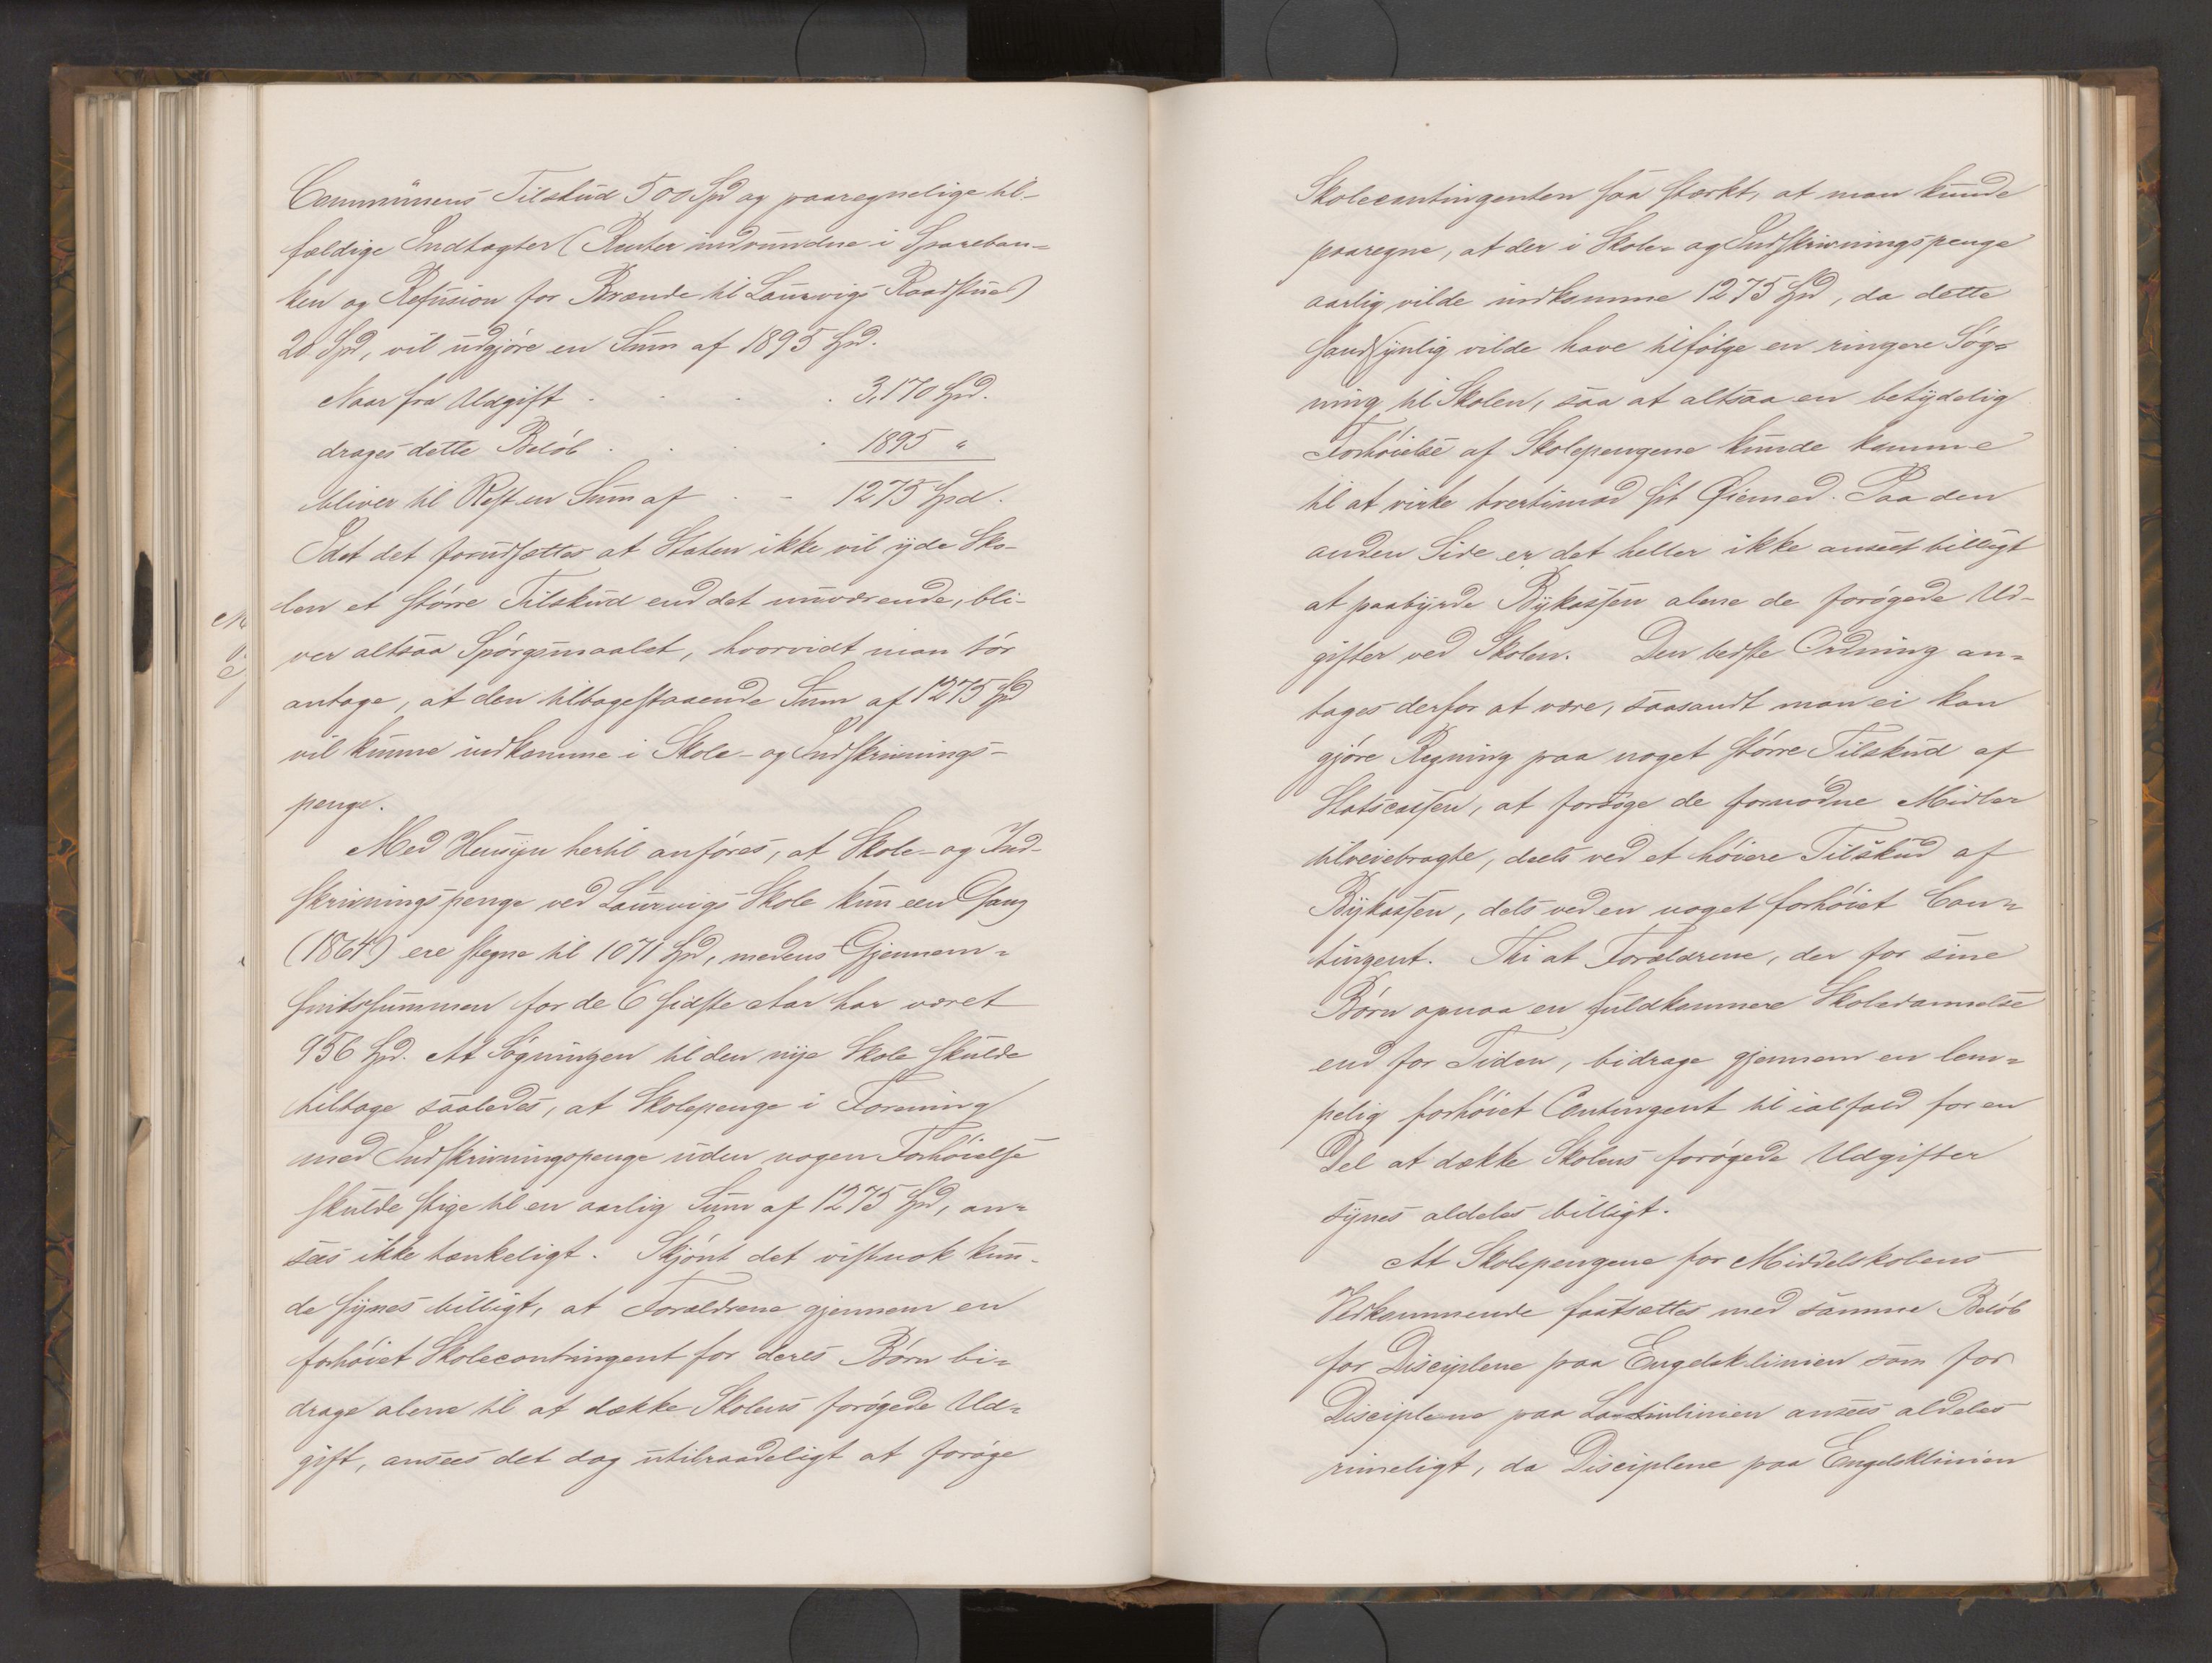 Communens Tilskud 500 Spd og paaregnelige til-
fældige Indtægter (Renter indvundne i Spareban-
ken og Refusion for Brænde til Laurvigs Raadstue)
20 Spd, vil udgjøre en Sum af 1895 Spd.
Naar fra Udgift . . . . 3,170 Spd.
drages dette Beløb . . . . 1895 "
bliver til Rest en Sum af . - 1275 Spd.
Idet det forudsættes at Staten ikke vil yde Sko-
len et større Tilskud end det nuværende, bli-
ver altsaa Spørgsmaalet, hvorvidt man tør
antage, at den tilbagestaaende Sum af 1275 Spd
vil kunne indkomme i Skole- og Indskrivnings-
penge.
Med Hensyn hertil anføres, at Skole- og Ind-
skrivningspenge ved Laurvigs Skole kun een Gang
(1864) ere stegne til 1071 Spd, medens Gjennem-
snitssummen for de 6 sidste Aar har været
956 Spd. At Søgningen til den nye Skole skulde
tiltage saaledes, at Skolepenge i Forening
med Indskrivningspenge uden nogen Forhøielse
skulde stige til en aarlig Sum af 1275 Spd, an-
sees ikke tænkeligt. Skjønt det vistnok kun-
de synes billigt, at Forældrene gjennem en
forhøiet Skolecontingent for deres Børn bi-
drage alene til at dække Skolens forøgede Ud-
gift, ansees det dog utilraadeligt at forøge
Skolecontingenten saa stærkt, at man kunde
paaregne, at der i Skole- og Indskrivningspenge
aarlig vilde indkomme 1275 Spd, da dette
sandsynlig vilde have tilfølge en ringere Søg-
ning til Skolen, saa at altsaa en betydelig
Forhøielse af Skolepengene kunde komme
til at virke tvertimod sit Øiemed. Paa den
anden Side er det heller ikke anseet billigt
at paabyrde Bykassen alene de forøgede Ud-
gifter ved Skolen. Den bedste Ordning an-
tages derfor at være, saasandt man ei kan
gjøre Regning paa noget større Tilskud af
Statscassen, at forsøge de fornødne Midler
tilveiebragte, deels ved et høiere Tilskud af
Bykassen, dels ved en noget forhøiet Con-
tingent. Thi at Forældrene, der for sine
Børn opnaa en fuldkomnere Skoledannelse
end for Tiden, bidrage gjennem en lem-
pelig forhøiet Contingent til ialfald for en
Del at dække Skolens forøgede Udgifter
synes aldeles billigt.
At Skolepengene for Middelskolens
Vedkommende fastsættes med samme Beløb
for Disciplene paa Engelsklinien som for
Disciplene paa Latinlinien ansees aldeles
rimeligt, da Disciplene paa Engelsklinien